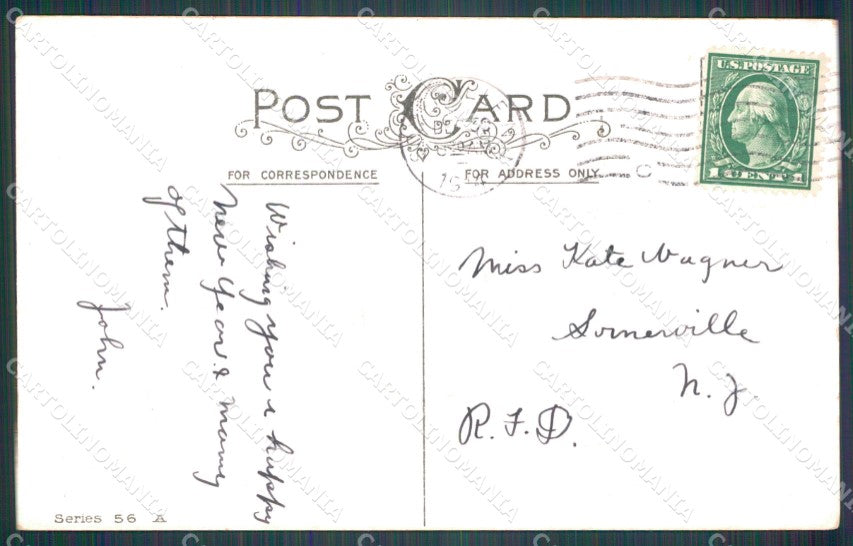 POST CARD
FOR CORRESPONDENCE
FOR ADDRESS ONLY.
U.S. POSTAGE
1 CENT 1
Wishing you a happy
New Year & many
of them.
John.
Miss Kate Wagner
Somerville
N. J.
R. F. D.
Series 56 A
CARTOLINOMANIA